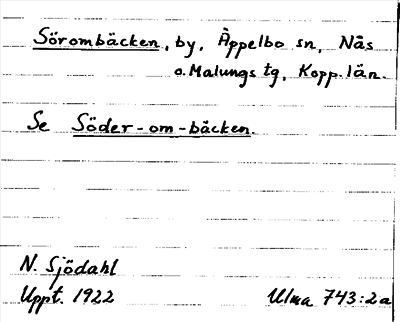 Sörombäcken, by, Äppelbo sn, Nås
o. Malungs tg, Kopp. län.
Se Söder-om-bäcken.
N. Sjödahl
Uppt. 1922 Ulma 743:2a